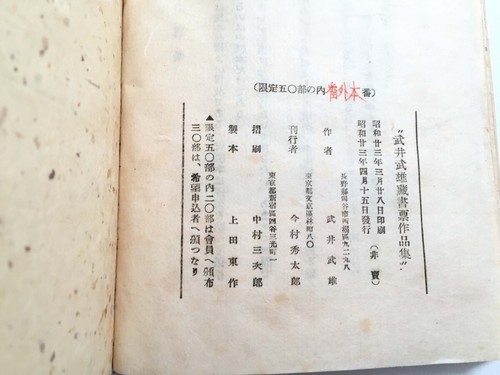 (限定五〇部の内番外本番)
“武井武雄蔵書票作品集”
昭和廿三年三月廿八日印刷
昭和廿三年四月十五日発行
(非賣)
長野縣岡谷市西堀區九二九八
作者 武井武雄
東京都文京區林町八〇
刊行者 今村秀太郎
東京都新宿區四谷三光町一
摺刷 中村三次郎
製本 上田東作
▲限定五〇部の内二〇部は會員へ頒布
三〇部は、希望申込者へ頒つなり